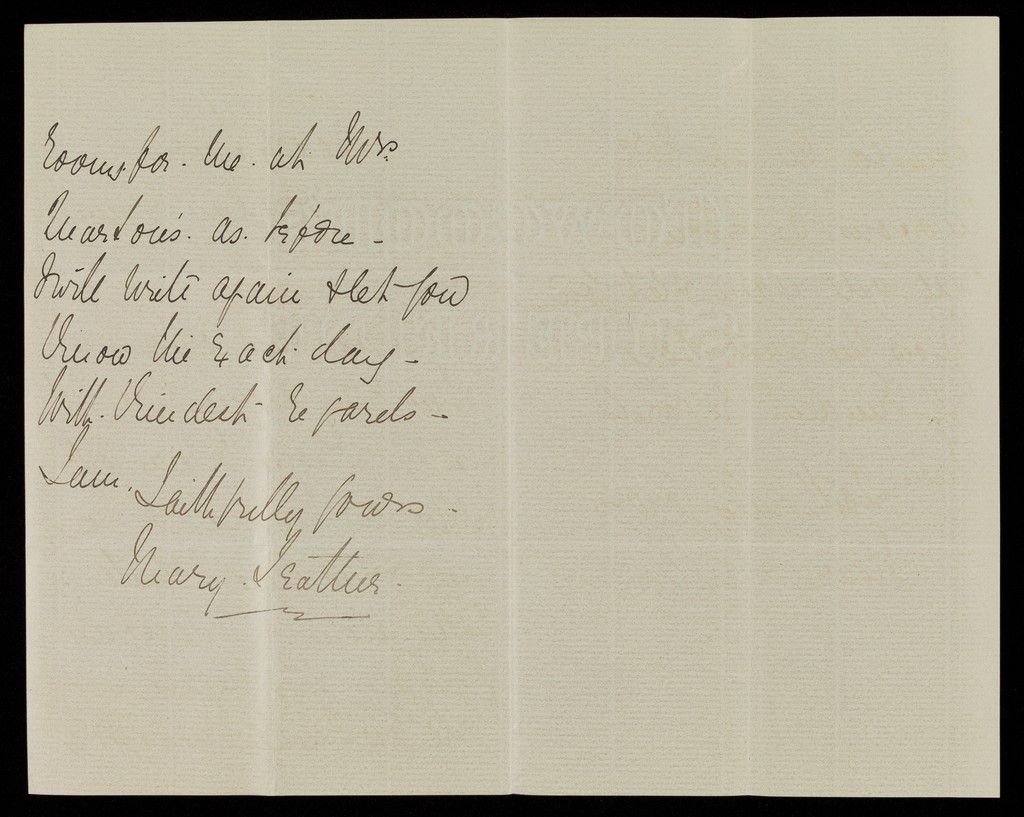 rooms for. me. at Mrs
Marston's. as. before -
I will write again & let you
know the exact day -
With. kindest regards -
I am. Faithfully yours -
Mary.